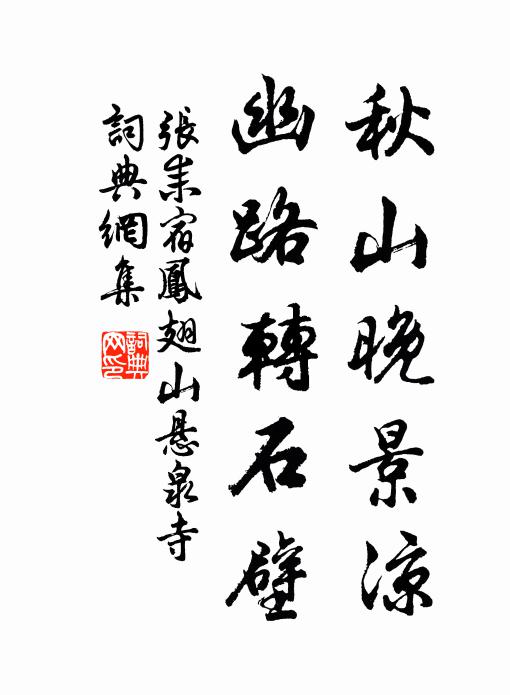 秋山晚景涼
幽路轉石壁
張耒宿鳳翅山懸泉寺
詞典網集
詞典
网印